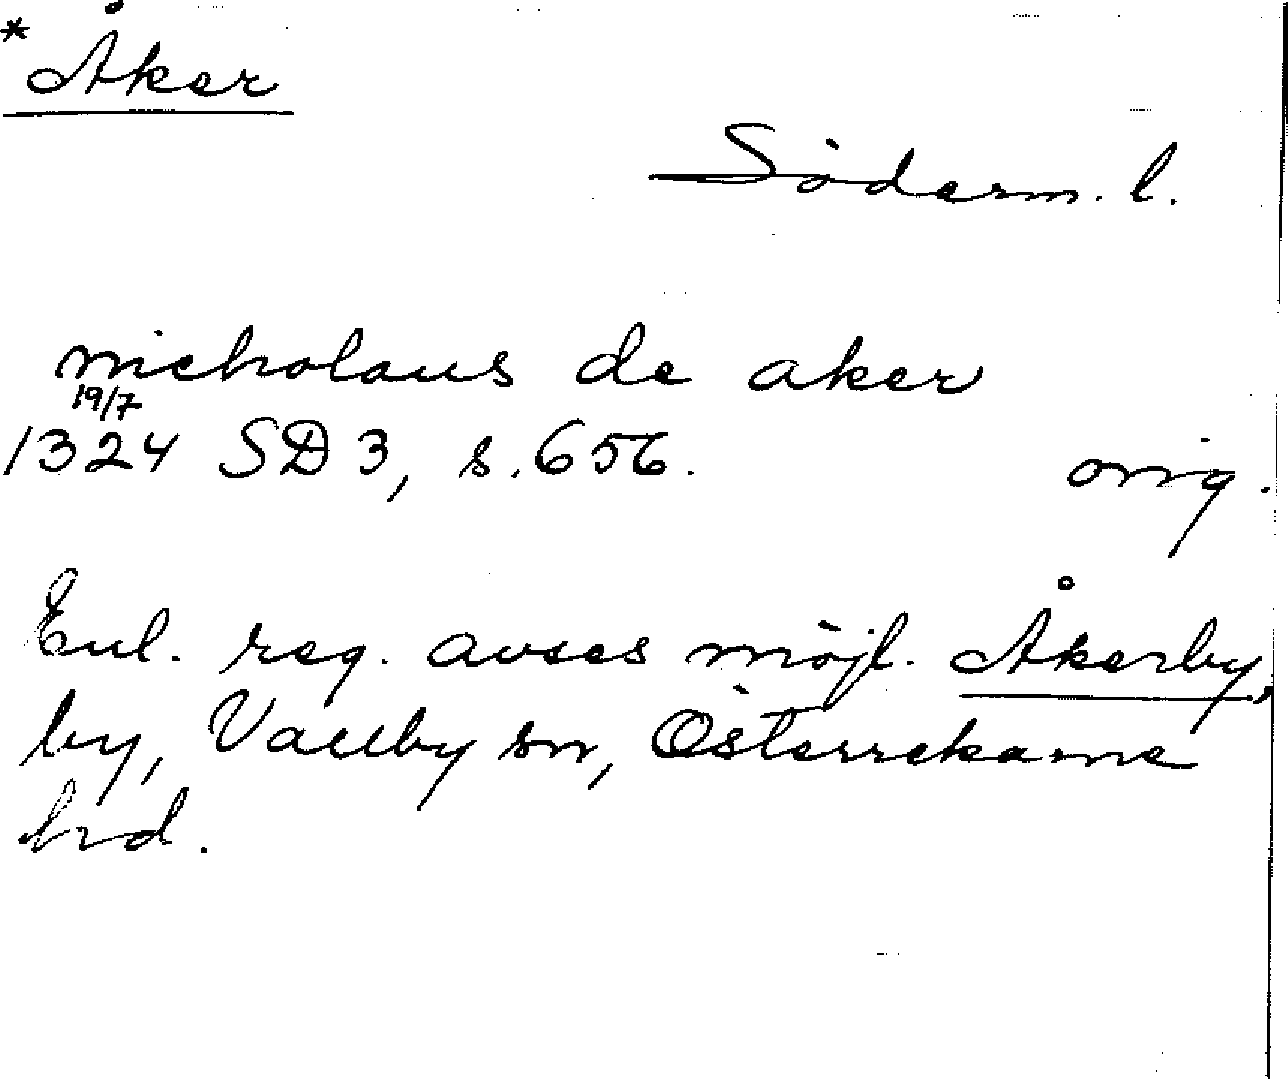 * Åker
Söderm. l.
nicholaus de aker
19/7
1324 SD 3, s. 656. orig.
Enl. reg. avses möjl. Åkerby,
by, Vallby sn, Österrekarne
hd.